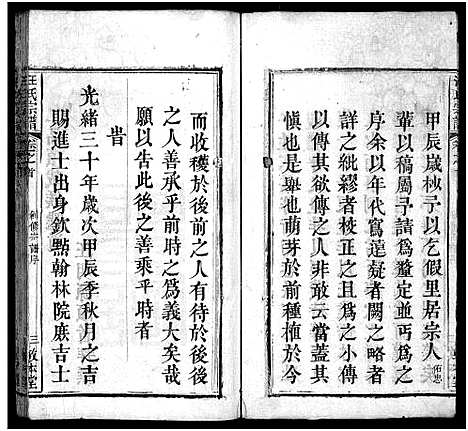 甲辰歲杪予以乞假里居宗人佑忠
輩以稿屬予請爲釐定并丐爲之
序余以年代寫遠疑者闕之略者
詳之紕繆者校正之且爲之小傳
傳其欲傳之人非敢云傳信其
愼也是舉也萌芽於前
而收穫於後前之人有待於後後
之人善承乎前時之爲義大矣哉
願以告此後之善乘乎時者
旹
光緒三十年歲次甲辰季秋月之吉
賜進士出身欽點翰林院庶吉士
汪氏宗譜
卷之首
三
敦本堂